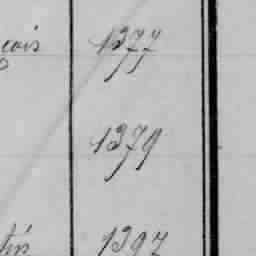 çois 1377
1379
tin 1397